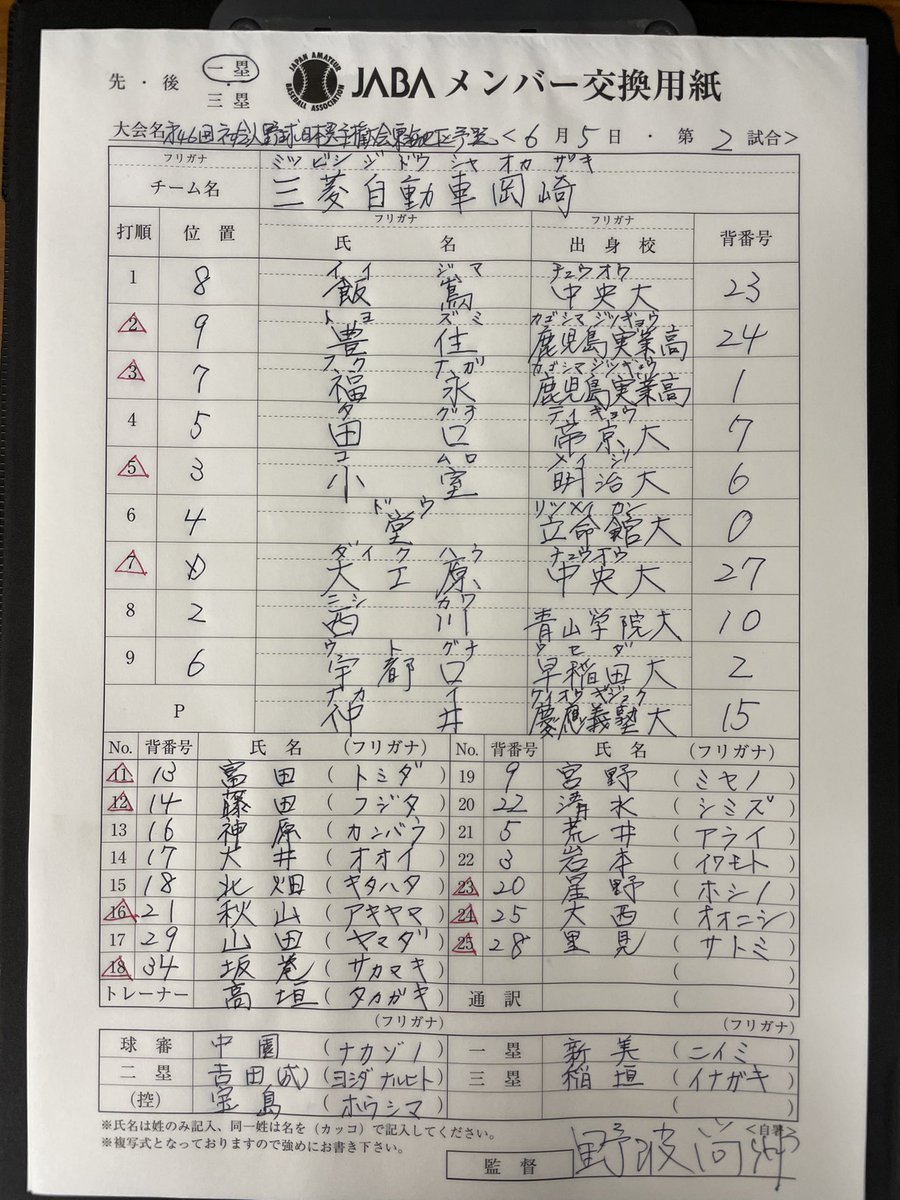 先・後 一塁・三塁 JAPAN AMATEUR BASEBALL ASSOCIATION JABA メンバー交換用紙
大会名 第46回社会人野球日本選手権大会東海地区予選 <6月5日・第2試合>
フリガナ ミツビシジドウシャオカザキ
チーム名 三菱自動車岡崎
打順 位置 フリガナ 氏名 フリガナ 出身校 背番号
イイジマ チュウオウ
1 8 飯嶌 中央大 23
トヨズミ カゴシマジツギョウ
2 9 豊住 鹿児島実業高 24
フクナガ カゴシマジツギョウ
3 7 福永 鹿児島実業高 1
タグチ テイキョウ
4 5 田口 帝京大 7
コムロ メイジ
5 3 小室 明治大 6
ドウ リツメイカン
6 4 堂 立命館大 0
ダイクハラ チュウオウ
7 D 大工原 中央大 27
ニシカワ
8 2 西川 青山学院大 10
ウトグチ ワセダ
9 6 宇都口 早稲田大 2
ナカイ ケイオウギジュク
P 仲井 慶應義塾大 15
No. 背番号 氏名 (フリガナ) No. 背番号 氏名 (フリガナ)
11 13 富田 (トミダ) 19 9 宮野 (ミヤノ)
12 14 藤田 (フジタ) 20 22 清水 (シミズ)
13 16 神原 (カンバラ) 21 5 荒井 (アライ)
14 17 大井 (オオイ) 22 3 岩本 (イワモト)
15 18 北畑 (キタハタ) 23 20 星野 (ホシノ)
16 21 秋山 (アキヤマ) 24 25 大西 (オオニシ)
17 29 山田 (ヤマダ) 25 28 里見 (サトミ)
18 34 坂巻 (サカマキ) ( )
トレーナー 高垣 (タカガキ) 通訳 ( )
(フリガナ) (フリガナ)
球審 中園 (ナカゾノ) 一塁 新美 (ニイミ)
二塁 吉田(成) (ヨシダ ナルヒト) 三塁 稲垣 (イナガキ)
(控) 宝島 (ホウシマ) ( )
※氏名は姓のみ記入、同一姓は名を(カッコ)で記入してください。
※複写式となっておりますので強めにお書き下さい。 <自署>
監督 野波尚